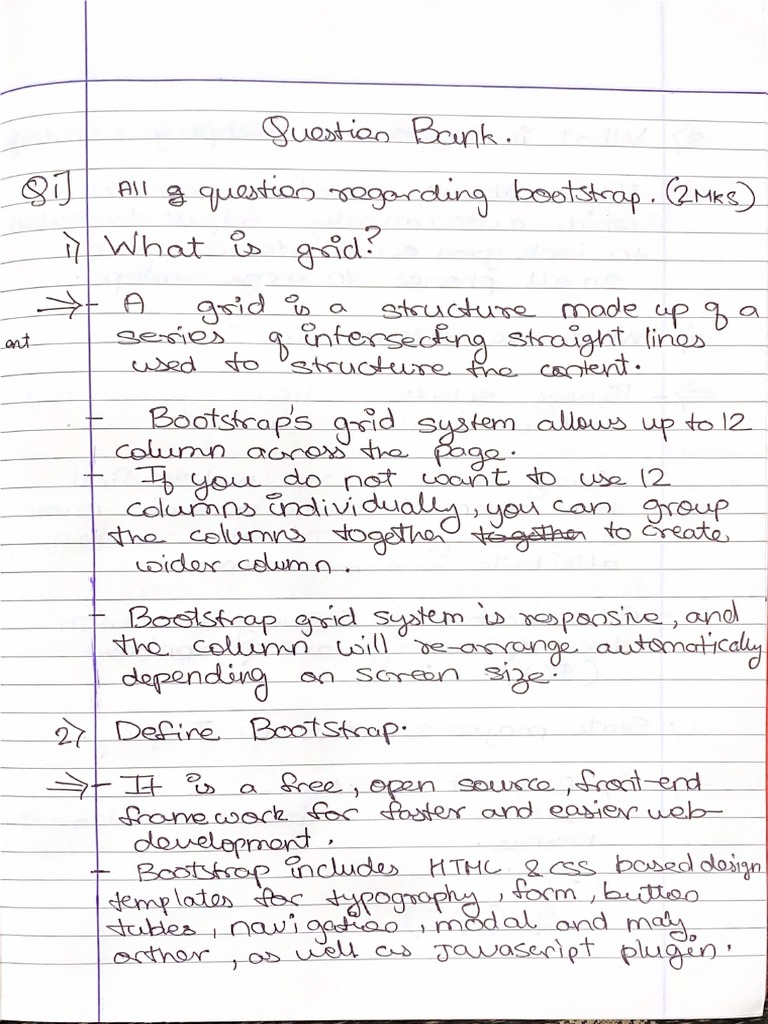 Question Bank.
Q1] All question regarding bootstrap. (2MKS)
1) What is grid?
⇒ - A grid is a structure made up of a
series of intersecting straight lines
ent
used to structure the content.
- Bootstrap's grid system allows up to 12
column across the page.
- If you do not want to use 12
columns individually, you can group
the columns together together to create
wider column.
- Bootstrap grid system is responsive, and
the column will re-arrange automatically
depending on screen size.
2) Define Bootstrap.
⇒ - It is a free, open source, front-end
framework for faster and easier web-
development.
- Bootstrap includes HTML & CSS based design
templates for typography, form, button
tables, navigation, modal and may
orther, as well as Javascript plugin.